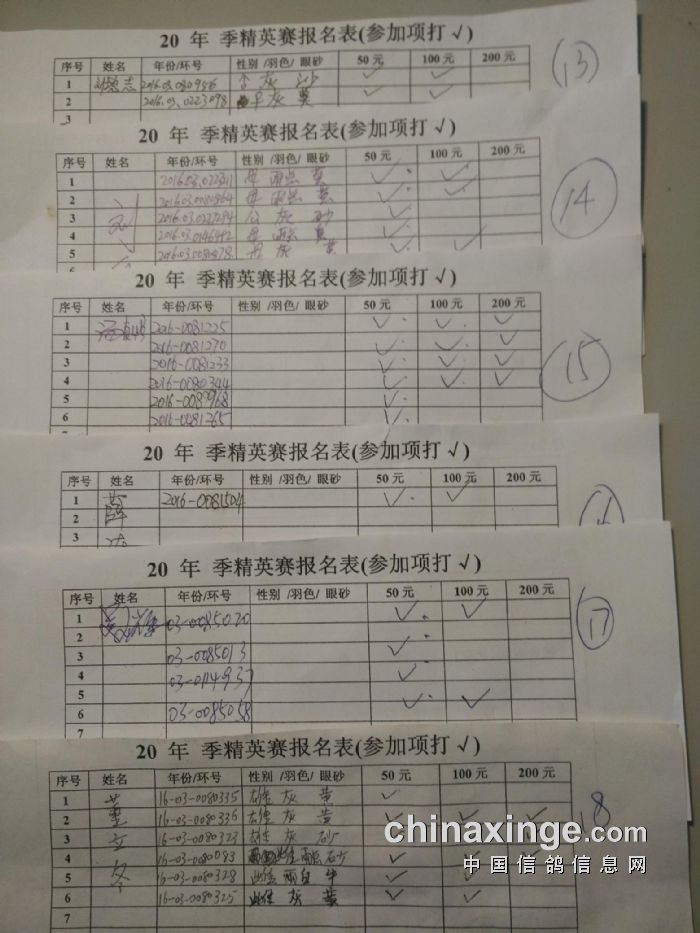 20 年 季精英赛报名表(参加项打 √)
序号 姓名 年份/环号 性别 /羽色/ 眼砂 50 元 100 元 200 元
1 志 2016.03.080956 灰 沙 √ √
2 2016.03.0223098 灰 黄 √ √
3
13
20 年 季精英赛报名表(参加项打 √)
序号 姓名 年份/环号 性别 /羽色/ 眼砂 50 元 100 元 200 元
1 黄 √ √
2 刘 2016.03.0080964 雨点 黄 √ √
3 2016.03.0227294 公 灰 砂 √
4 2016.03.0146442 雨点 黄 √
5 2016.03.0080978 灰 黄 √ √
14
20 年 季精英赛报名表(参加项打 √)
序号 姓名 年份/环号 性别 /羽色/ 眼砂 50 元 100 元 200 元
1 2016-0081225 √ √ √
2 2016-0081270 √ √ √
3 2016-0081233 √ √ √
4 2016-0080344 √ √ √
5 √
6 2016-0081265 √
15
20 年 季精英赛报名表(参加项打 √)
序号 姓名 年份/环号 性别 /羽色/ 眼砂 50 元 100 元 200 元
1 2016-0081504 √ √
2 薛
3
16
20 年 季精英赛报名表(参加项打 √)
序号 姓名 年份/环号 性别 /羽色/ 眼砂 50 元 100 元 200 元
1 03-0085020 √ √
2
3 03-0085013 √
4 03-0114937 √
5
6 03-0085058 √ √
7
17
20 年 季精英赛报名表(参加项打 √)
序号 姓名 年份/环号 性别 /羽色/ 眼砂 50 元 100 元 200 元
1 16-03-0080335 雄 灰 黄 √
2 董 16-03-0080336 雄 灰 黄 √ √ √
3 文 16-03-0080323 雄 灰 砂 √ √
4 冬 16-03-0080093 雌 雨点 砂 √
5 16-03-0080328 雌 雨白 牛 √ √
6 16-03-0080325 雌 灰 黄 √ √
7
18
chinaxinge.com
中国信鸽信息网